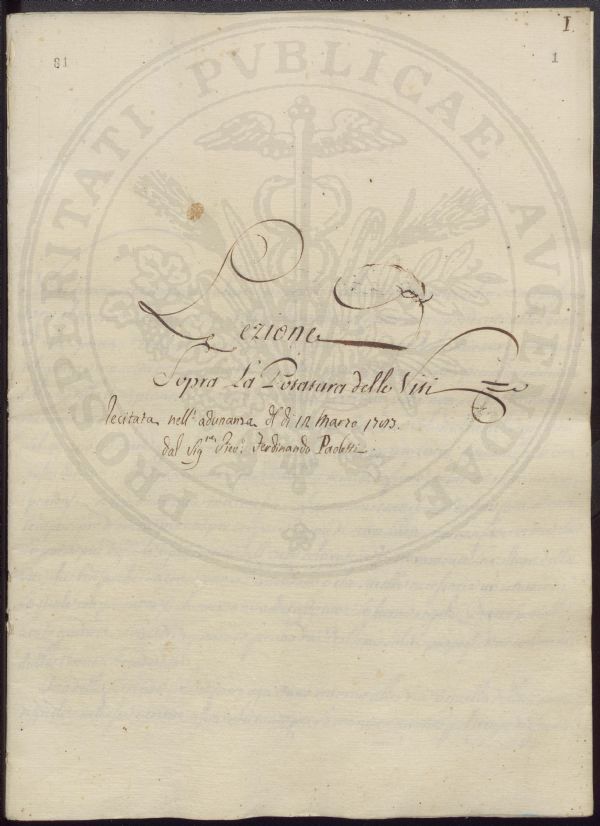 I
81
1
PROSPERITATI PVBLICAE AVGENDAE
Lezione
Sopra La Potatura delle Viti
recitata nell' adunanza
di 12 Marzo
dal Sig.re Piev.o Ferdinando Paoletti